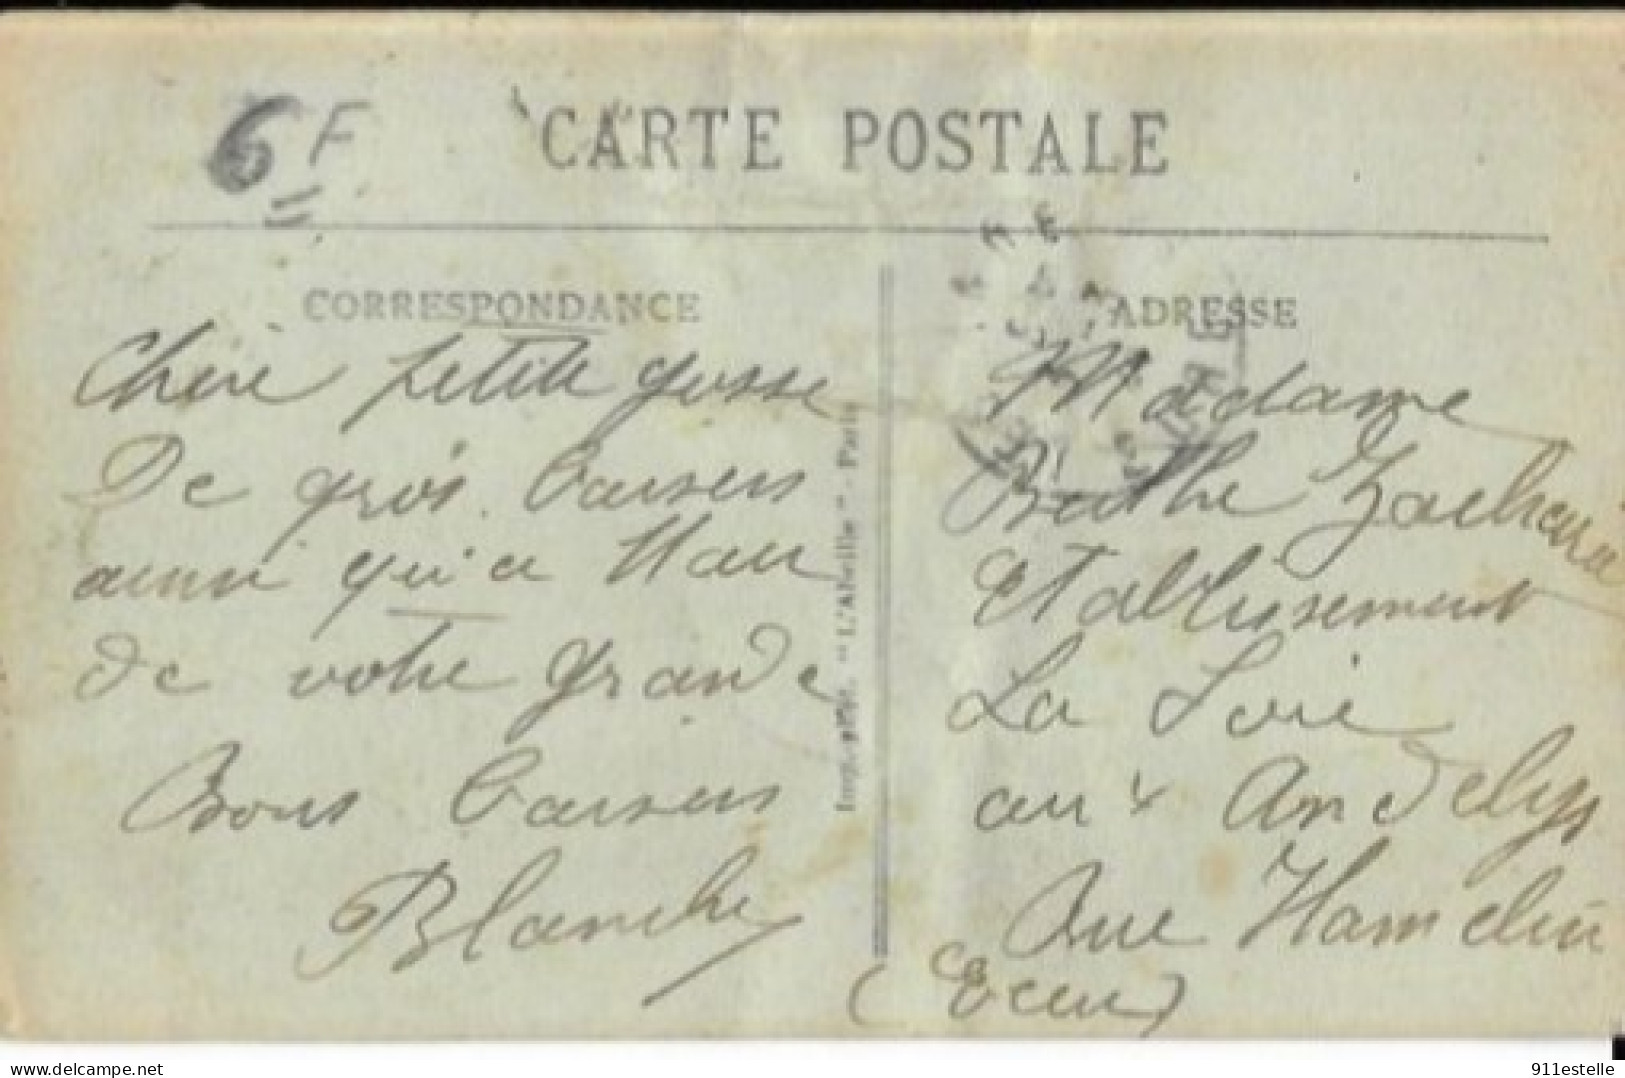 6 F
CARTE POSTALE
CORRESPONDANCE
Chère petite gosse
De gros baisers
ainsi qu'a
de votre grande
Bons baisers
Blanche
Imp.-phot. "L'Abeille" - Paris
ADRESSE
Madame
Berthe
Etablissement
La Soie
aux Andelys
Rue Hamelin
(Eure)
delcampe.net
911estelle